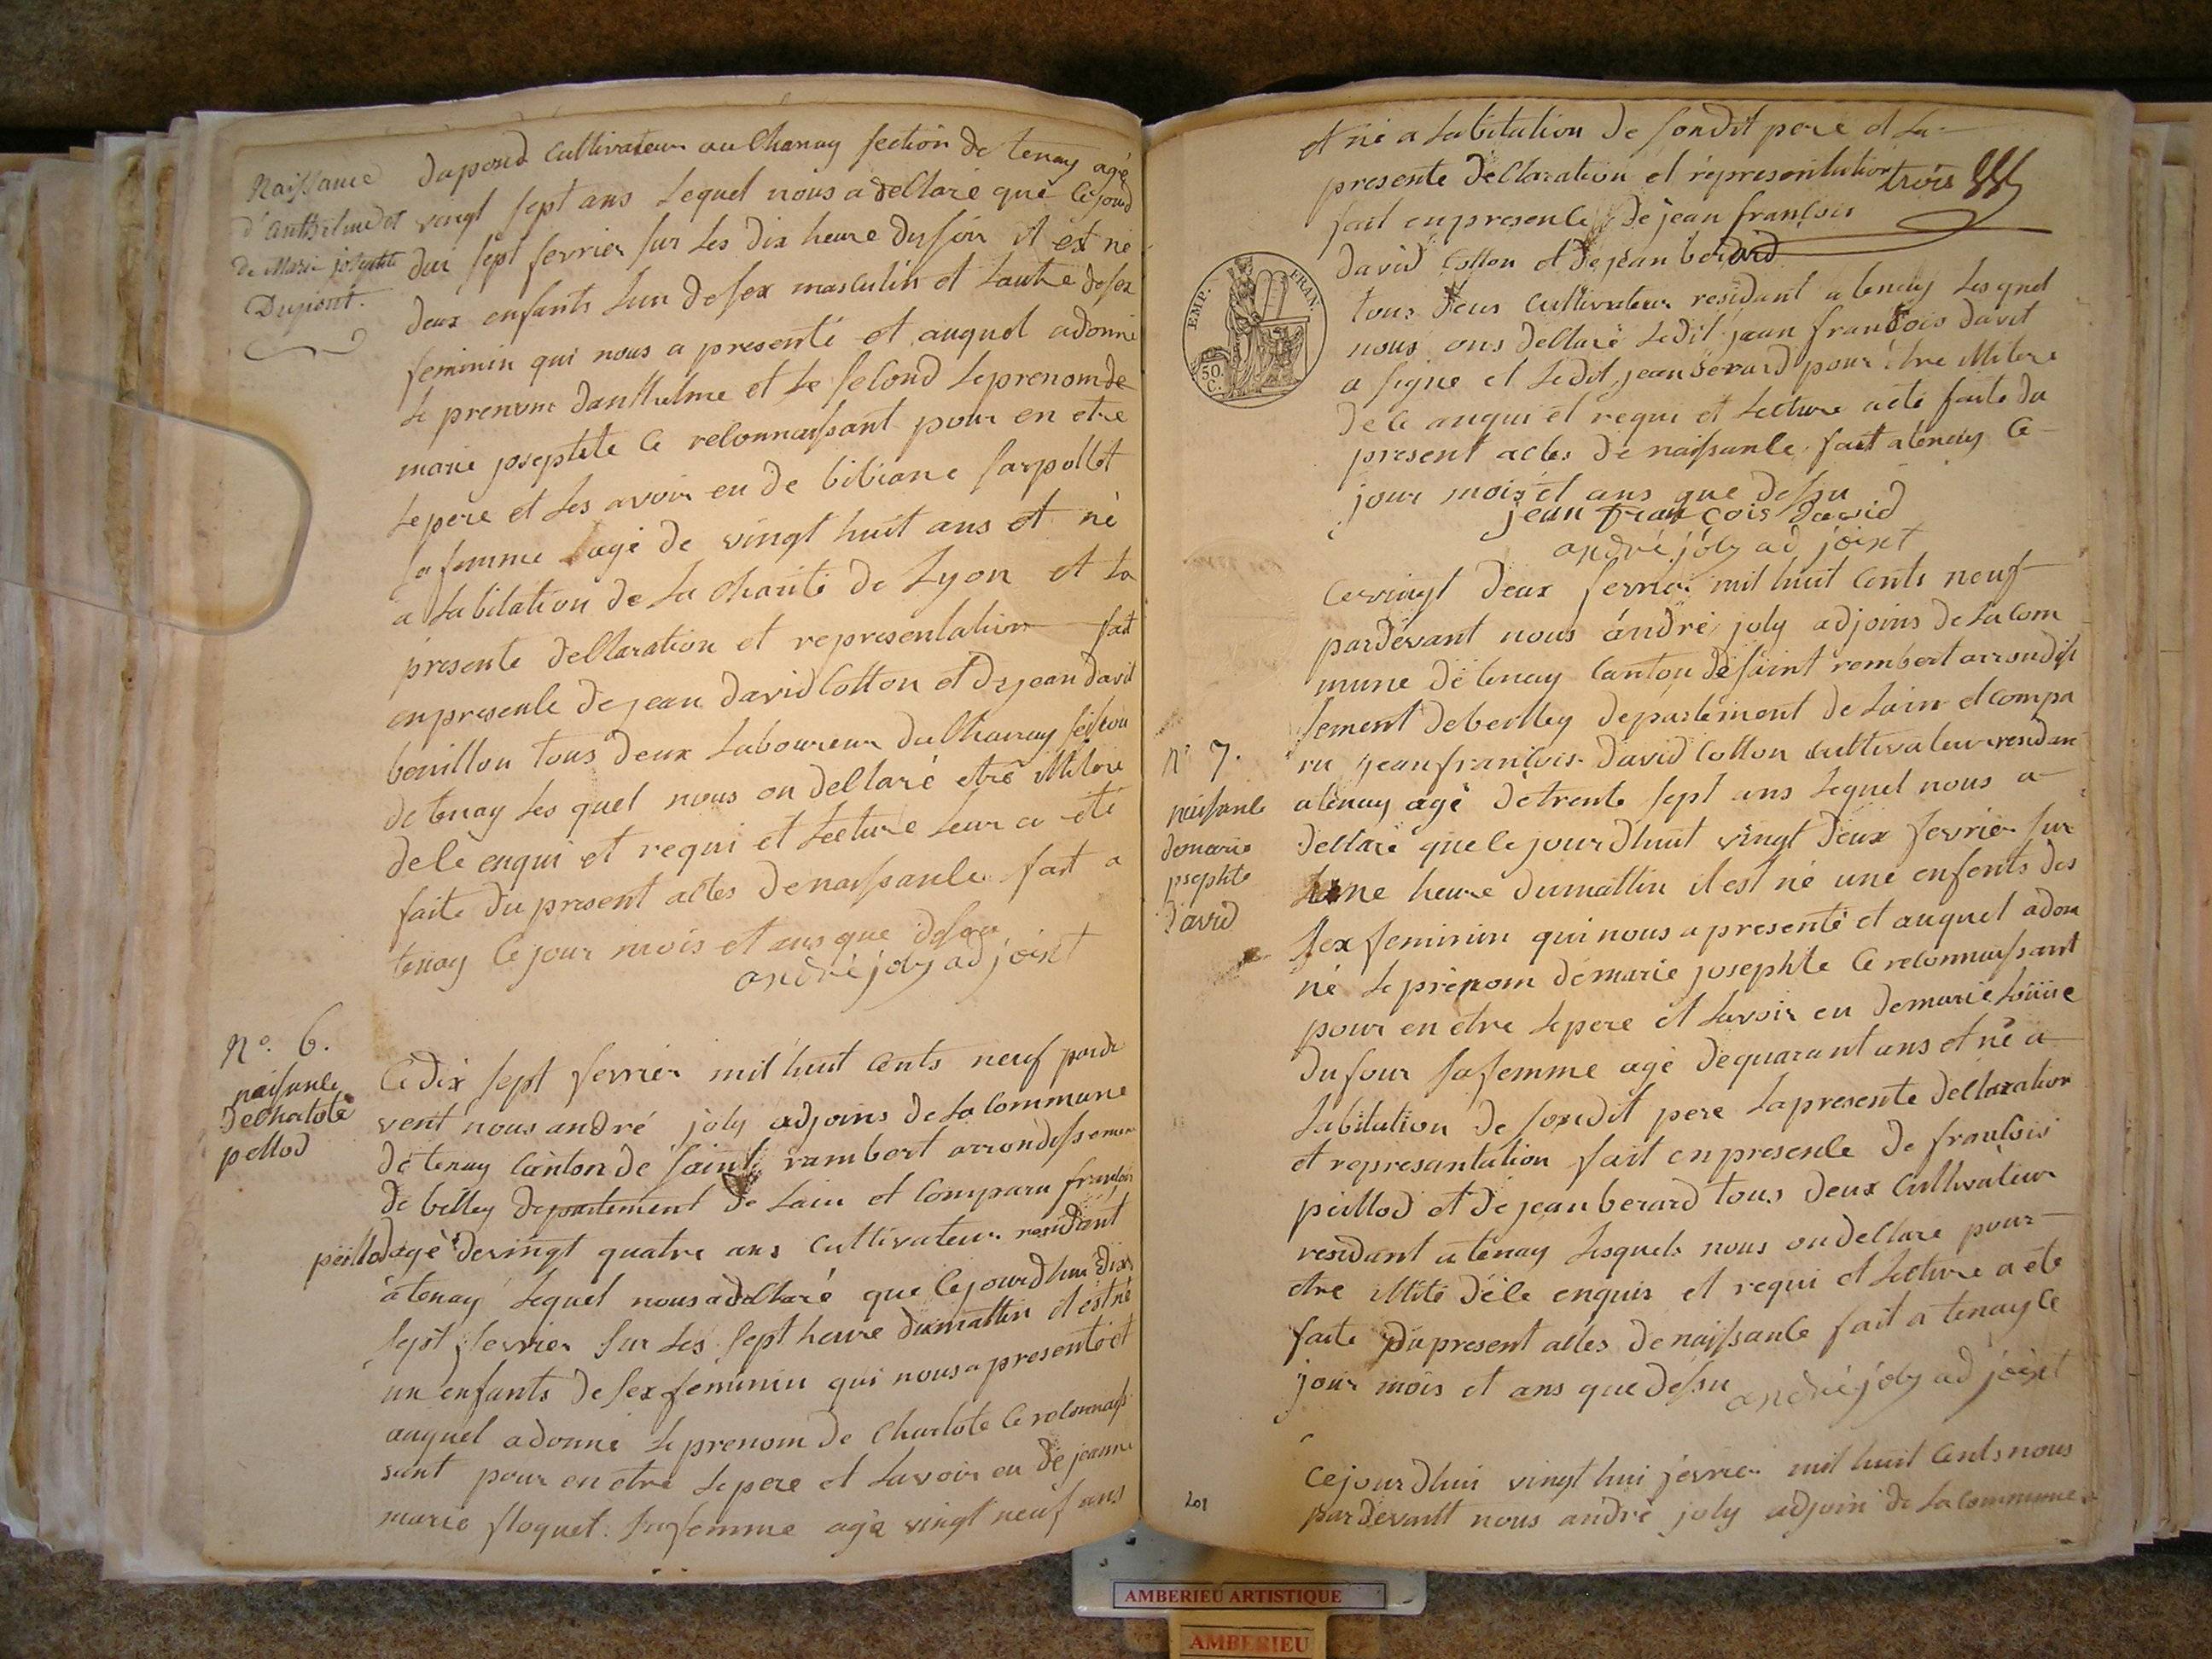 Naissance
d'anthelme et
de Marie josephte
Dupont.
dupond Cultivateur au Chanay section de tenay agé
vingt sept ans Lequel nous a dellaré que Cejourd
dui sept fevrier sur Les dix heure du soir il est né
deux enfants Lun desex masculin et Lautre desex
feminin qui nous a presenté et auquel adonné
Le prenom danthelme et Le selond Leprenom de
marie josephte Ce relonnaissant pour en etre
Lepere et Les avoir eu de bibiane sarpollet
sa femme agé de vingt huit ans et né
a Labitation de La charité de Lyon et La
presente dellaration et representation fait
enpresenle de jean david Cotton et de jean david
bouillon tous deux Laboureur du Chanay section
de tenay Les quel nous on dellaré etre illitere
dele enqui et requi et Lecture Leur a été
faite du present altes denaissanle fait a
tenay Ce jour mois et ans que dessu
andré joly ad joint
No. 6.
naissanle
de Chalote
pellod
Ce dix sept fevrier mil huit Cents neuf parde
vent nous andré joly adjoins de La Commune
de tenay Canton de saint rambert arrondissemen
de belley departement de Lain et Comparu françois
peillod agé devingt quatre ans Cultivateur residant
à tenay Lequel nous a dellaré que Cejourdhui dix
sept fevrier sur Les sept heure dumattin il est né
un enfants de sex feminin qui nous a presenté et
auquel adonné Le prenom de Charlote Ce relonnais
sant pour en etre Lepere et Lavoir eu de jeanne
marie floquet. sa femme agé vingt neuf ans
et né a Labitation de sondit pere et La
presente dellaration et representation trois
fait enpresenle de jean franlois
david Cotton et de jean berard
EMP. FRAN.
50.
C.
tous deus Cultivateur residant a tenay Lesquel
nous ons dellaré Ledit jean franlois davit
a signe et Ledit jean berard pour etre illitere
dele anqui et requi et Lecture aété faite du
present actes de naissanle fait atenay Ce
jour mois et ans que dessu
jean françois David
andré joly ad joint
Cevingt deux fevrier mil huit Cents neuf
pardevant nous andré joly adjoins de La Com
mune de tenay Canton de saint rembert arrondis
sement debeilley departement de Lain et Compa
No 7.
naissanle
de marie
josephte
david
ru jean franlois david Cotton Cultivateur residan
atenay agé detrente sept ans Lequel nous a
dellaré que Cejourdhuit vingt deux fevrier sur
Lune heure dumattin il est né une enfents des
sex feminin qui nous a presenté et auquel adon
né Le prenom de marie josephte Ce relonnaissant
pour en etre Lepere et Lavoir eu demarie Loüise
dufour sa femme agé dequarant ans et né a
Labitation de sondit pere La presente dellaration
et represantation fait enpresenle de franlois
peillod et de jean berard tous deux Cultivateur
residant a tenay Lesquels nous on dellare pour
etre illité déle enquis et requi et Lecture a ete
faite du present altes de naissanle fait a tenay Ce
jour mois et ans que dessu andré joly ad joint
Cejourdhui vingt hui fevrier mil huit Cents nous
pardevant nous andré joly adjoin de La Commune
201
AMBERIEU ARTISTIQUE
AMBERIEU